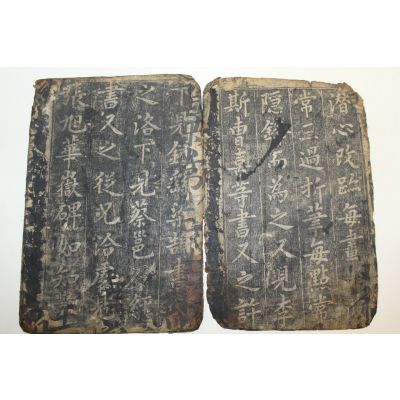 潛心改跡每畫
常三過折筆每點常
隱鋒而為之又見李
斯曹喜等書又之許
下見鍾繇梁鵠書
之洛下見蔡邕石經
書又之從兄洽處見
張旭華嶽碑始知